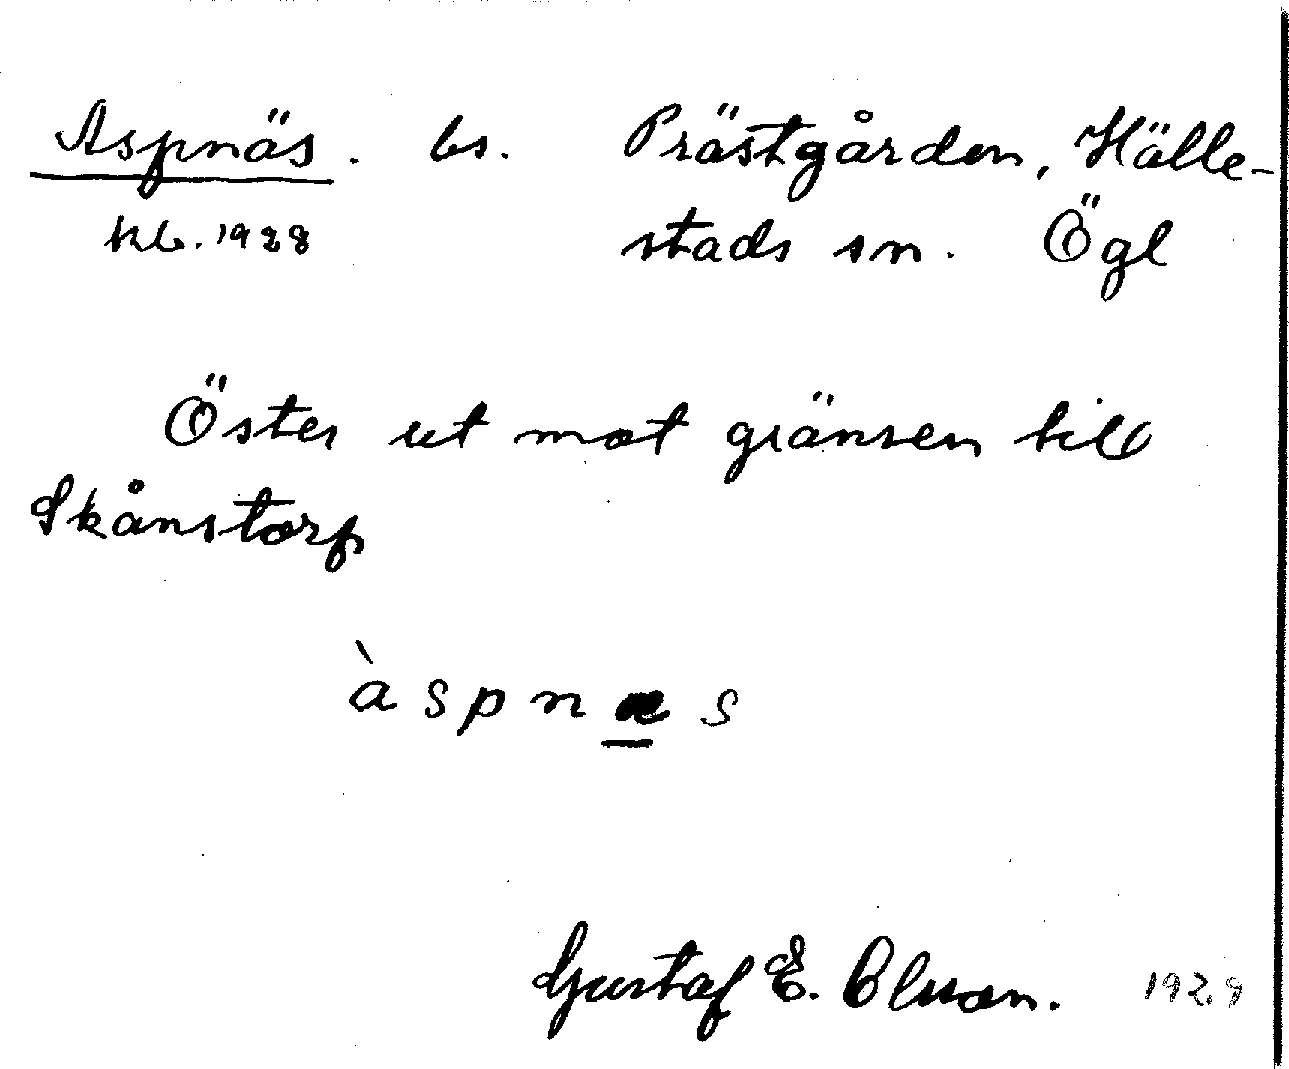 Aspnäs. bs. Prästgården, Hälle-
kb. 1928 stads sn. Ögl
Öster ut mot gränsen till
Skånstorp
àspnæs
Gustaf E. Olsson. 1928